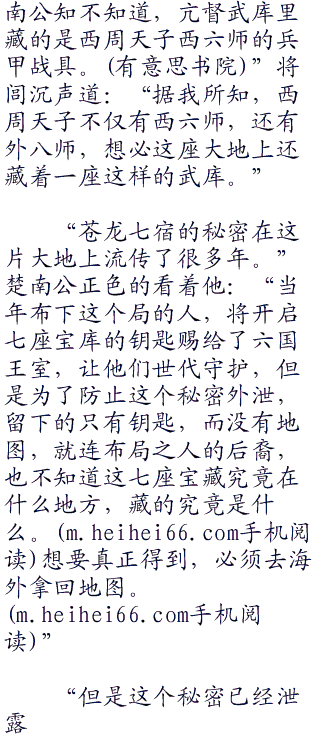 南公知不知道，亢督武库里
藏的是西周天子西六师的兵
甲战具。(有意思书院)”将
闾沉声道：“据我所知，西
周天子不仅有西六师，还有
外八师，想必这座大地上还
藏着一座这样的武库。”
“苍龙七宿的秘密在这
片大地上流传了很多年。”
楚南公正色的看着他：“当
年布下这个局的人，将开启
七座宝库的钥匙赐给了六国
王室，让他们世代守护，但
是为了防止这个秘密外泄，
留下的只有钥匙，而没有地
图，就连布局之人的后裔，
也不知道这七座宝藏究竟在
什么地方，藏的究竟是什
么。(m.heihei66.com手机阅
读)想要真正得到，必须去海
外拿回地图。
(m.heihei66.com手机阅
读)”
“但是这个秘密已经泄
露